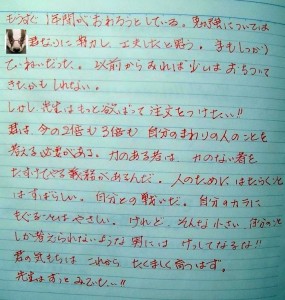 もうすぐ1年間がおわろうとしている。勉強については
君なりに努力し、工夫したと思う。まもしっかり
ていねいだった。以前からみれば少しはおちついて
きたかもしれない。
しかし先生はもっと欲ばって注文をつけたい!!
君は、今の2倍も3倍も自分のまわりの人のことを
考える必要がある。力のある者は、力のない者を
たすけてやる義務があるんだ。人のためにはたらくこと
はすばらしい。自分との戦いだ。自分のカラに
もぐることはやさしい。けれど、そんな小さい、自分のこと
しか考えられないような男にはけってなるな!!
君の気もちはこれからたくましく育つはず。
先生はずっとみていたい!!